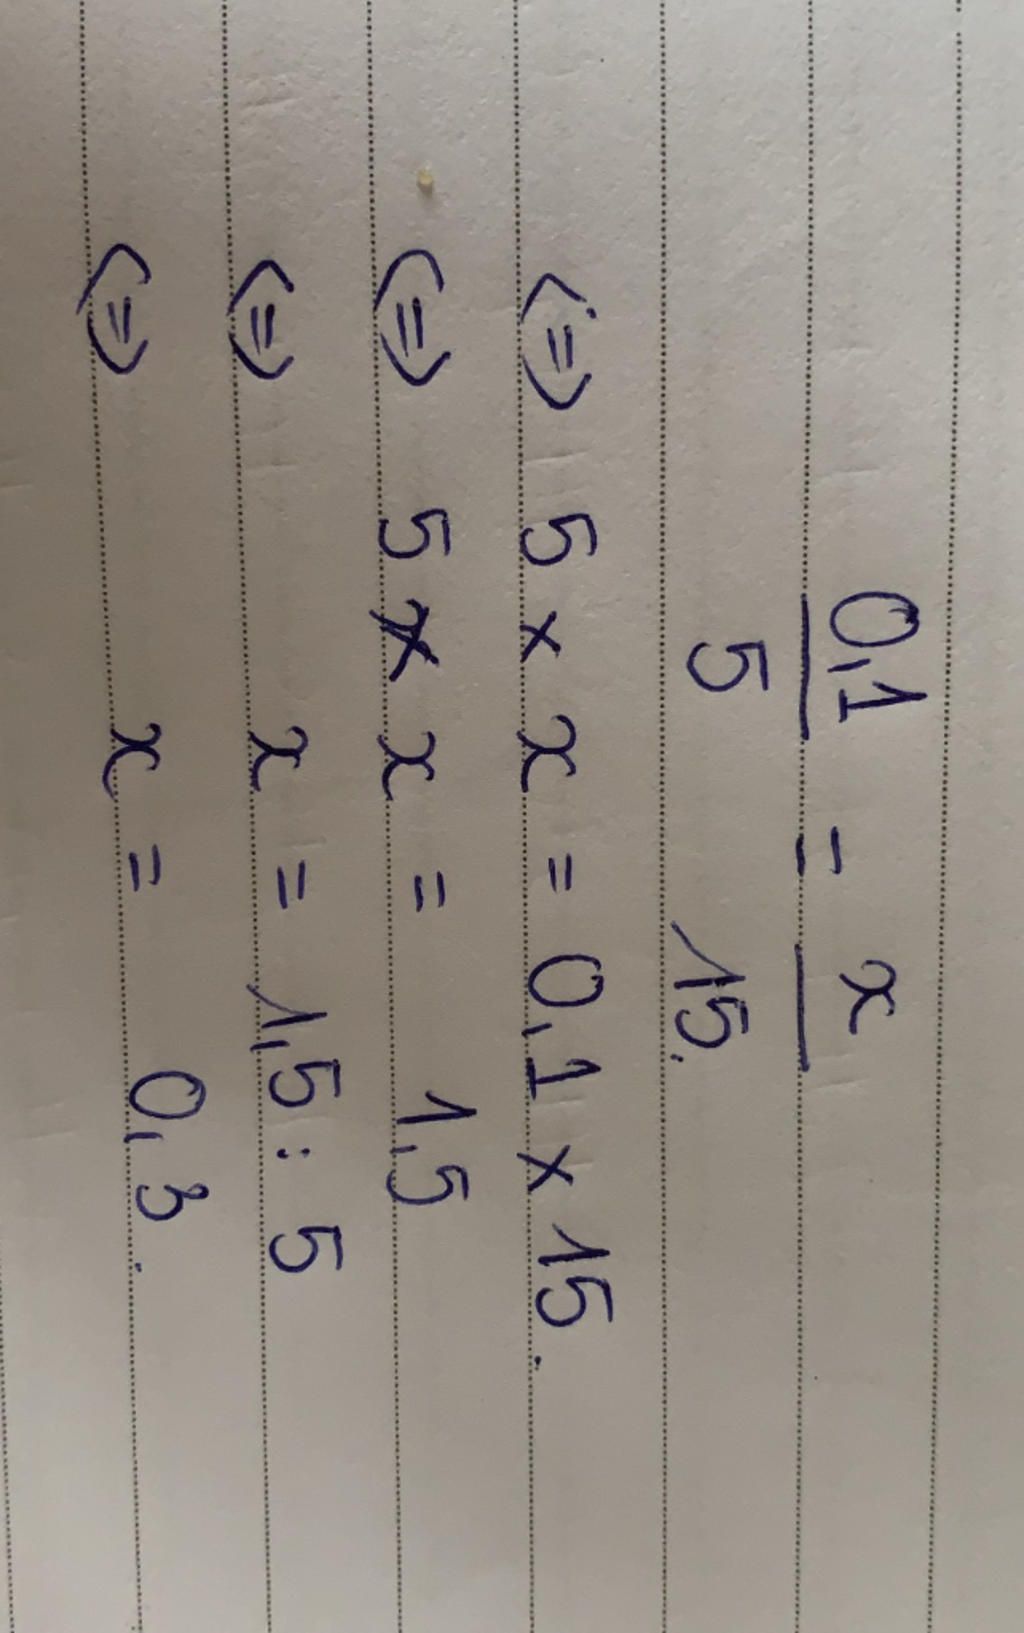 0,1 = x
5 15.
<=> 5 × x = 0,1 × 15.
<=> 5 × x = 1,5
<=> x = 1,5 : 5
<=> x = 0,3.